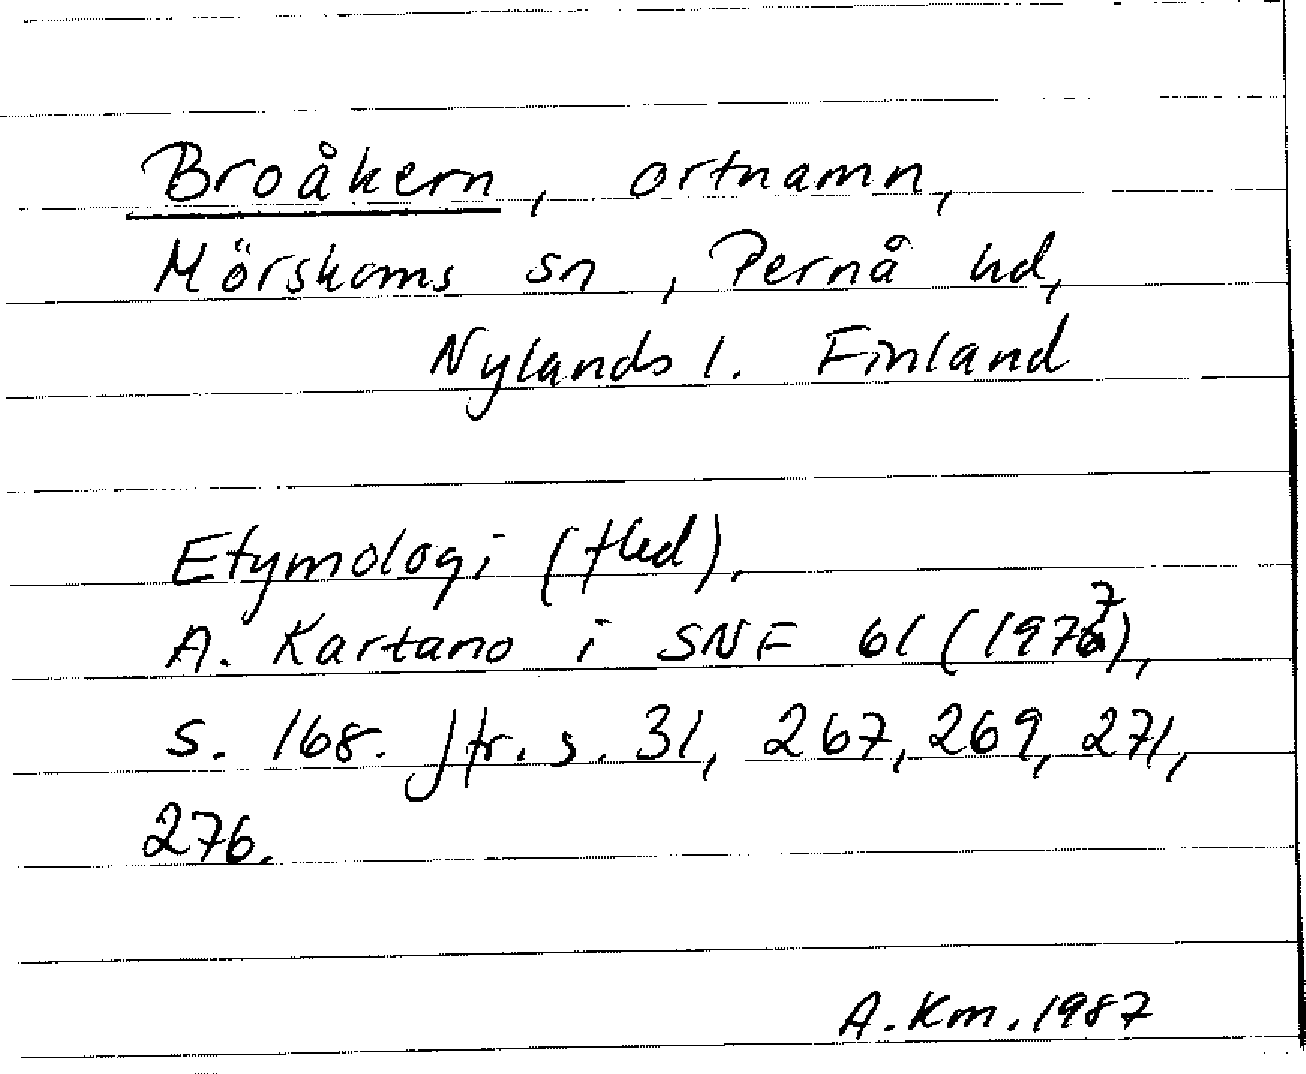 Broåkern, ortnamn,
Mörskoms sn, Pernå hd,
Nylands l. Finland
Etymologi (fled).
A. Kartano i SNF 61 (1977),
s. 168. Jfr. s. 31, 267, 269, 271,
276.
A. Km. 1987